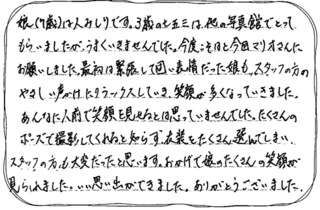 娘(7歳)は人みしりです。3歳の七五三は、他の写真館でとって
もらいましたが、うまくいきませんでした。今度こそはと今回マリオさんに
お願いしました。最初は緊張して固い表情だった娘も、スタッフの方の
やさしい声かけにリラックスしていき、笑顔が多くなっていきました。
あんなに人前で笑顔を見せれるとは思っていませんでした。たくさんの
ポーズで撮影してくれると知らず、衣装をたくさん選んでしまい
スタッフの方も大変だったと思います。おかげで娘のたくさんの笑顔が
見られました。いい思い出ができました。ありがとうございました。